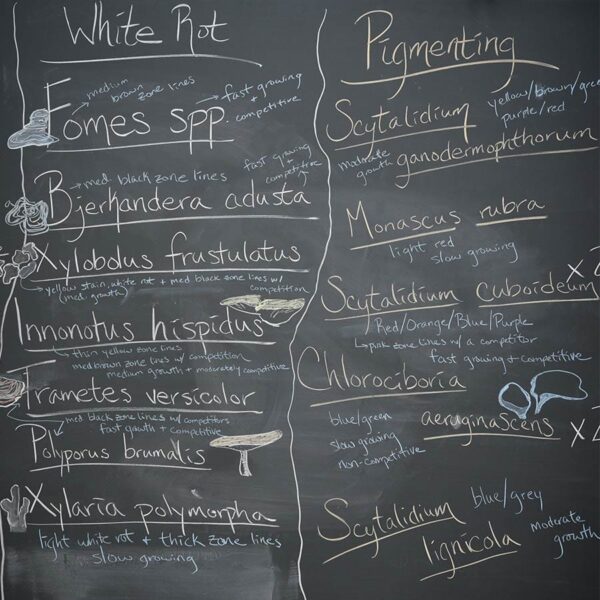 White Rot
medium
brown zone lines
fast growing
+
competitive
Fomes spp.
med black zone lines
fast growing
+
competitive
Bjerkandera adusta
Xylobolus frustulatus
yellow stain, white rot + med black zone lines w/
(med growth)
competition
Innonotus hispidus
thin yellow zone lines
med brown zone lines w/ competition
medium growth + moderately competitive
Trametes versicolor
med black zone lines w/ competitors
fast gowth + competitive
Polyporus brumalis
Xylaria polymorpha
light white rot + thick zone lines
slow growing
Pigmenting
Scytalidium
yellow/brown/gree
purple/red
moderate
growth
ganodermophthorum
Monascus rubra
light red
slow growing
X 2
Scytalidium cuboideum
Red/Orange/Blue/Purple
pink zone lines w/ a competitor
fast growing + competitive
Chlorociboria
aeruginascens
X 2
blue/green
slow growing
non-competitive
Scytalidium
blue/grey
lignicola
moderate
growth